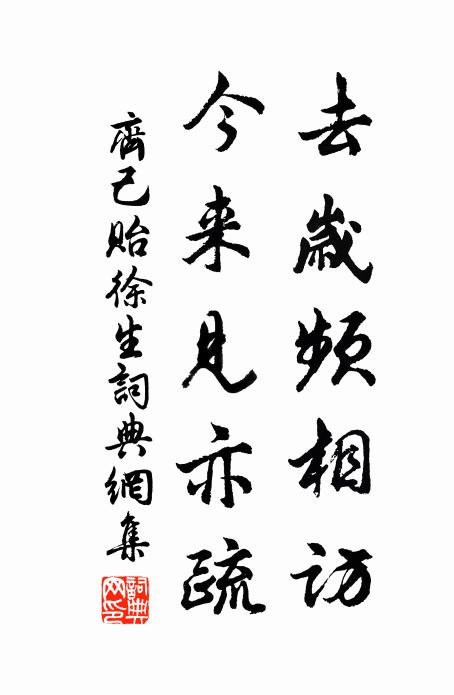 去歲頻相訪
今来見亦疏
齊己貽徐生詞典網集
詞典網印